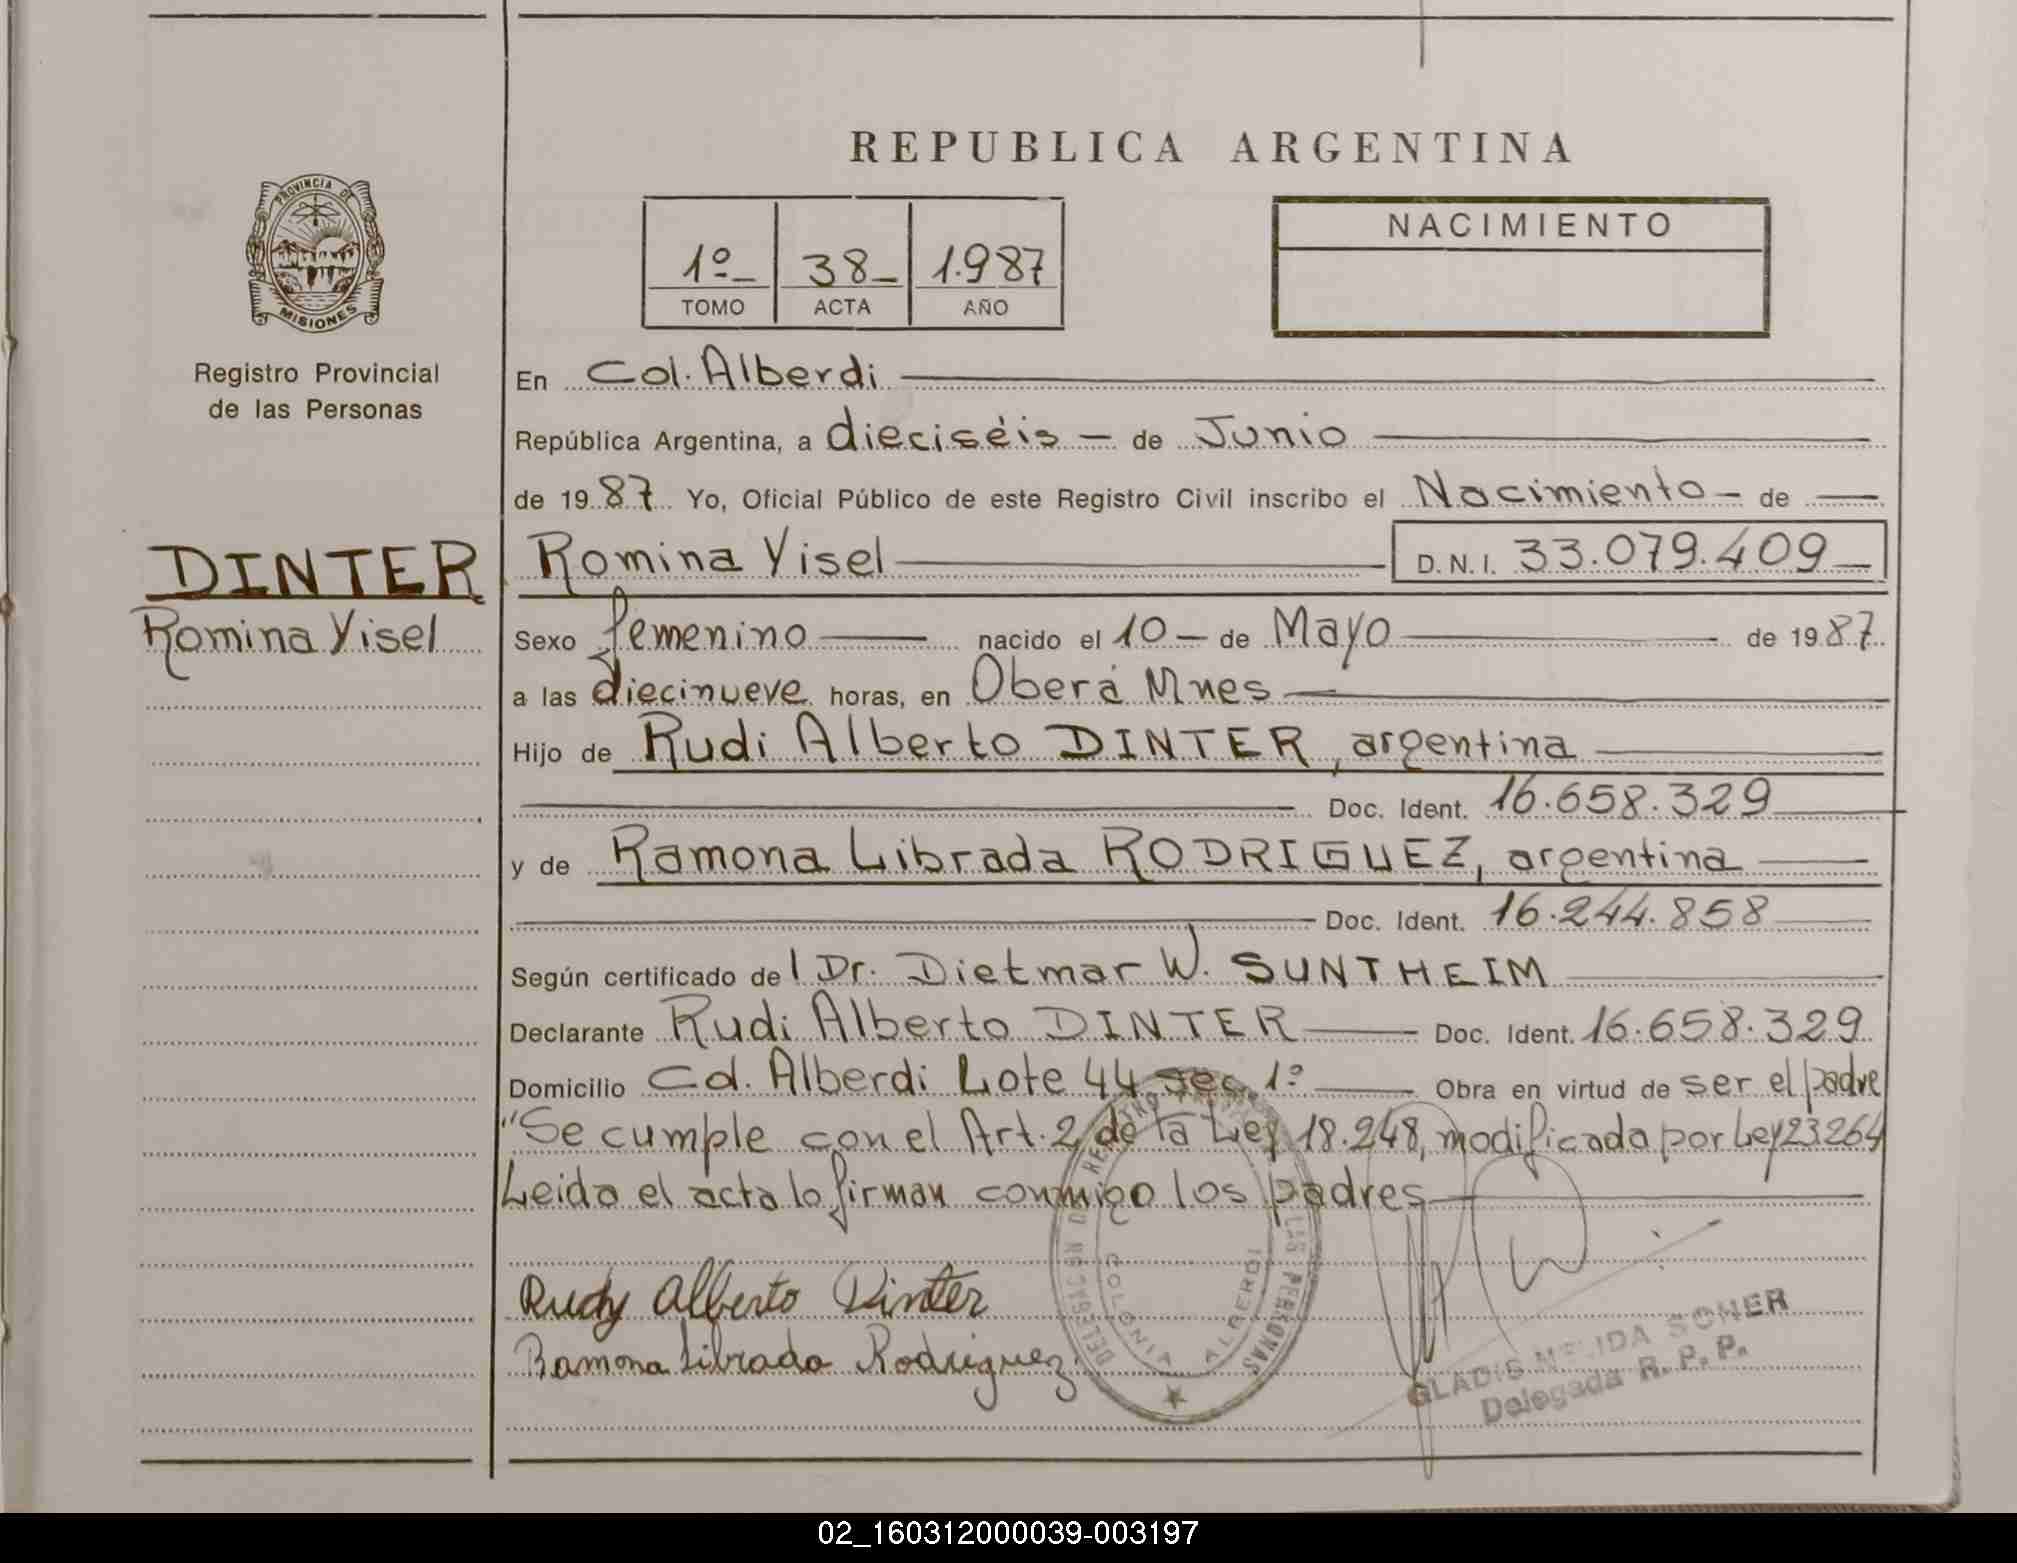 REPUBLICA ARGENTINA
PROVINCIA DE
MISIONES
Registro Provincial
de las Personas
1º TOMO
38 ACTA
1.987 AÑO
NACIMIENTO
En Col. Alberdi
República Argentina, a dieciséis de Junio
de 19 87 Yo, Oficial Público de este Registro Civil inscribo el Nacimiento de
DINTER
Romina Yisel
Romina Yisel D.N.I. 33.079.409
Sexo femenino nacido el 10 de Mayo de 19 87
a las diecinueve horas, en Oberá Mnes
Hijo de Rudi Alberto DINTER, argentina
Doc. Ident. 16.658.329
y de Ramona Librada RODRIGUEZ, argentina
Doc. Ident. 16.244.858
Según certificado del Dr. Dietmar W. SUNTHEIM
Declarante Rudi Alberto DINTER Doc. Ident. 16.658.329
Domicilio Col. Alberdi Lote 44 sec 1º Obra en virtud de ser el padre
"Se cumple con el Art. 2 de la Ley 18.248, modificada por Ley 23264
Leida el acta lo firman conmigo los padres
Rudy Alberto Dinter
Ramona Librada Rodriguez
COLONIA ALBERDI
DELEGACION DE REGISTRO LAS PERSONAS
GLADIS NELIDA
Delegada R. P. P.
02_160312000039-003197